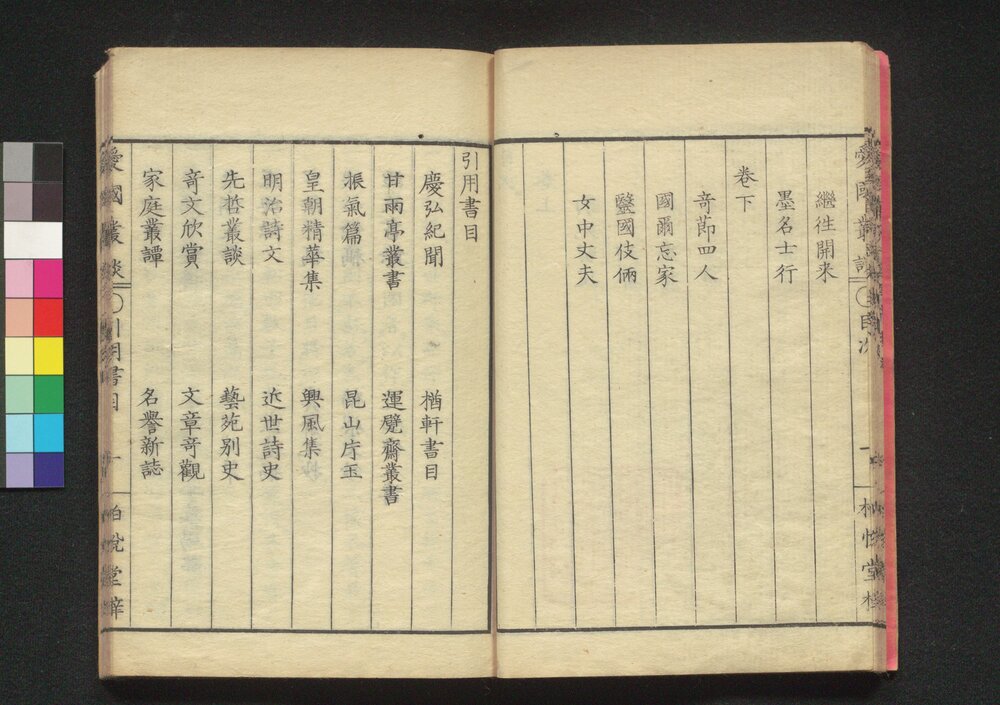 繼徃開来
墨名士行
卷下
竒莭四人
國爾忘家
毉國伎倆
女中丈夫
引用書目
慶弘紀聞
楢軒書目
甘雨亭叢書
運甓齋叢書
振氣篇
昆山片玉
皇朝精華集
興風集
明治詩文
近世詩史
先哲叢談
藝苑别史
竒文欣賞
文章竒觀
家庭叢譚
名譽新誌
目次
愛國叢談
引用書目
一